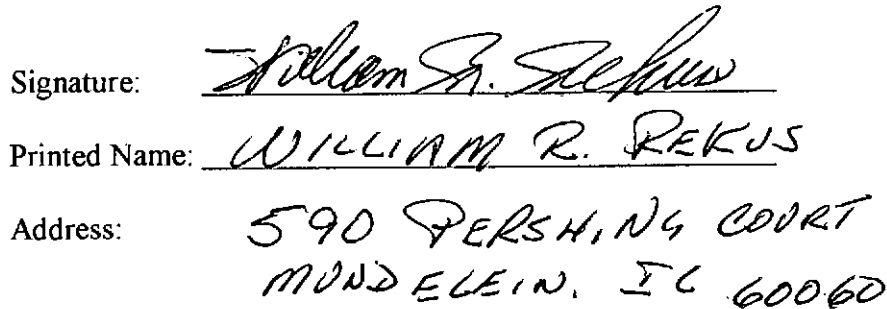 Signature: William R. Rekus
Printed Name: WILLIAM R. REKUS
Address: 590 PERSHING COURT
MUNDELEIN, IL 60060